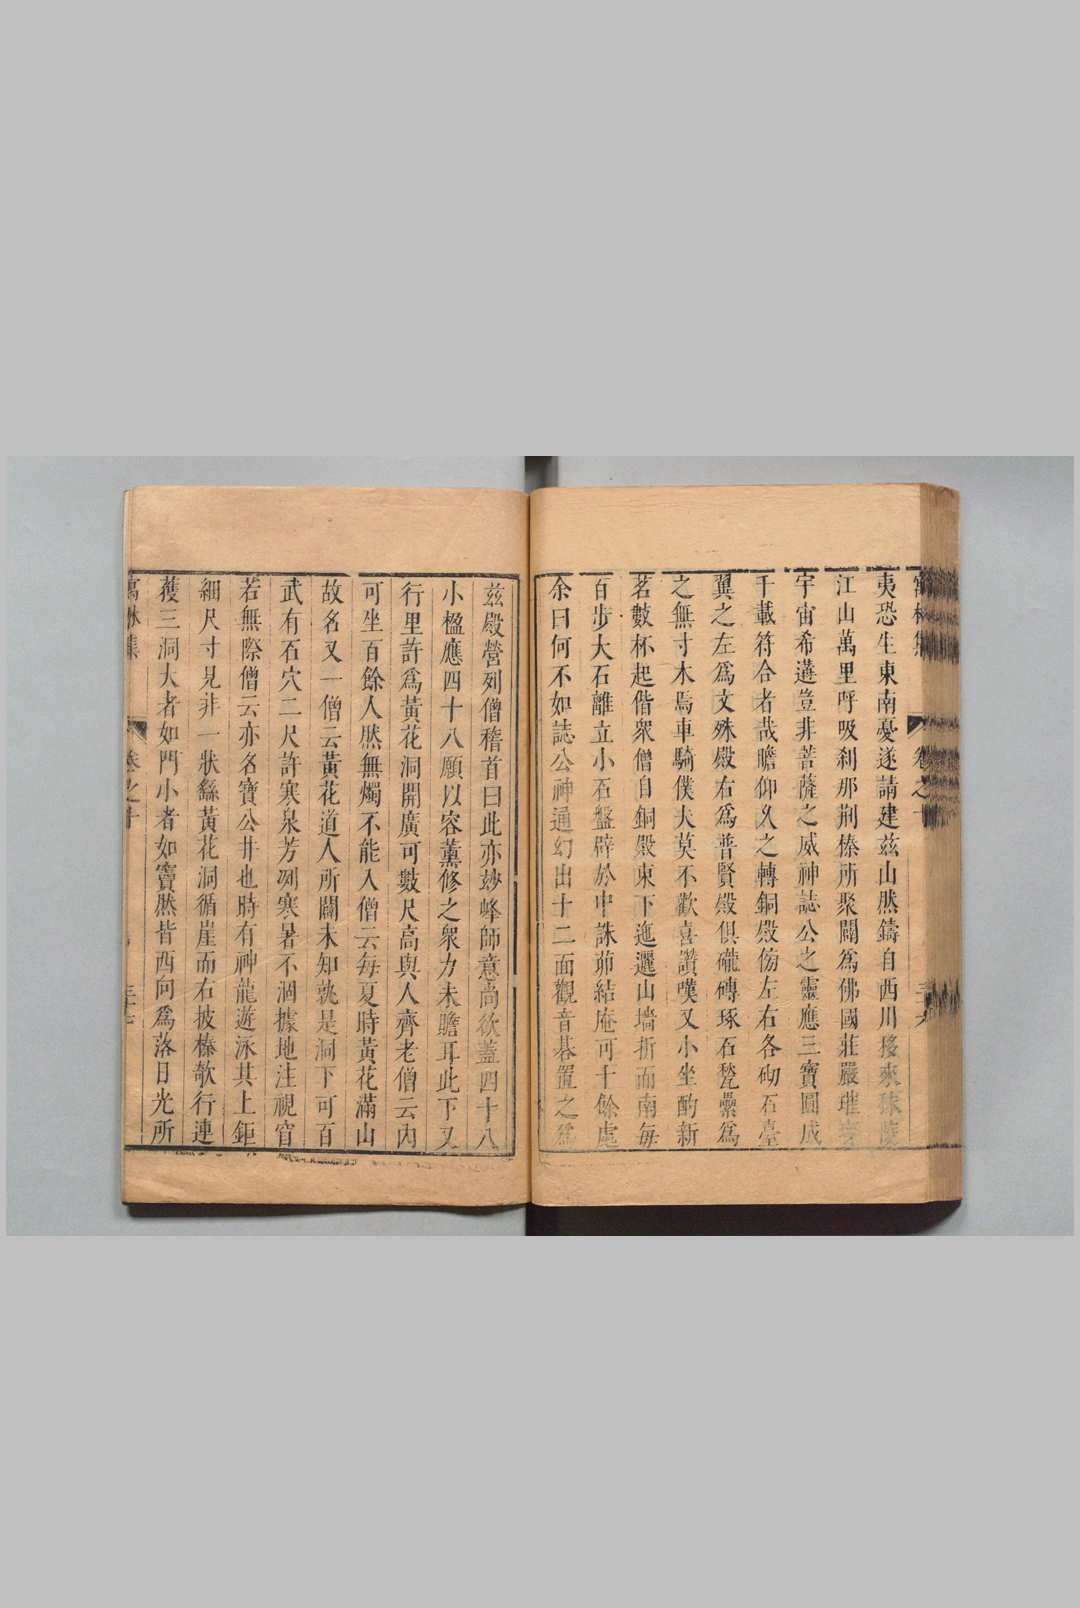 寓林集 卷之十
夷恐生東南憂遂請建茲山然鑄自西川移來秣陵
江山萬里呼吸刹那荆榛所聚闢為佛國莊嚴璀
宇宙希遘豈非菩薩之威神誌公之靈應三寶圓成
千載符合者哉瞻仰久之轉銅殿傍左右各砌石臺
翼之左為文殊殿右為普賢殿俱礲磚琢石甃壘為
之無寸木焉車騎僕夫莫不歡喜讚嘆又小坐酌新
茗數杯起偕衆僧自銅殿東下迤邐山墙折而南每
百步大石離立小石盤辟於中誅茆結庵可十餘處
余曰何不如誌公神通幻出十二面觀音碁置之為
茲殿營列僧稽首曰此亦妙峰師意尚欲蓋四十八
小楹應四十八願以容薰修之衆力未贍耳此下又
行里許為黃花洞開廣可數尺高與人齊老僧云内
可坐百餘人然無燭不能入僧云每夏時黃花滿山
故名又一僧云黃花道人所闢未知孰是洞下可百
武有石穴二尺許寒泉芳冽寒暑不涸據地注視窅
若無際僧云亦名寶公井也時有神龍遊泳其上鉅
細尺寸見非一狀繇黃花洞循崖而右披榛欹行連
獲三洞大者如門小者如竇然皆西向為落日光所
寓林集 卷之十